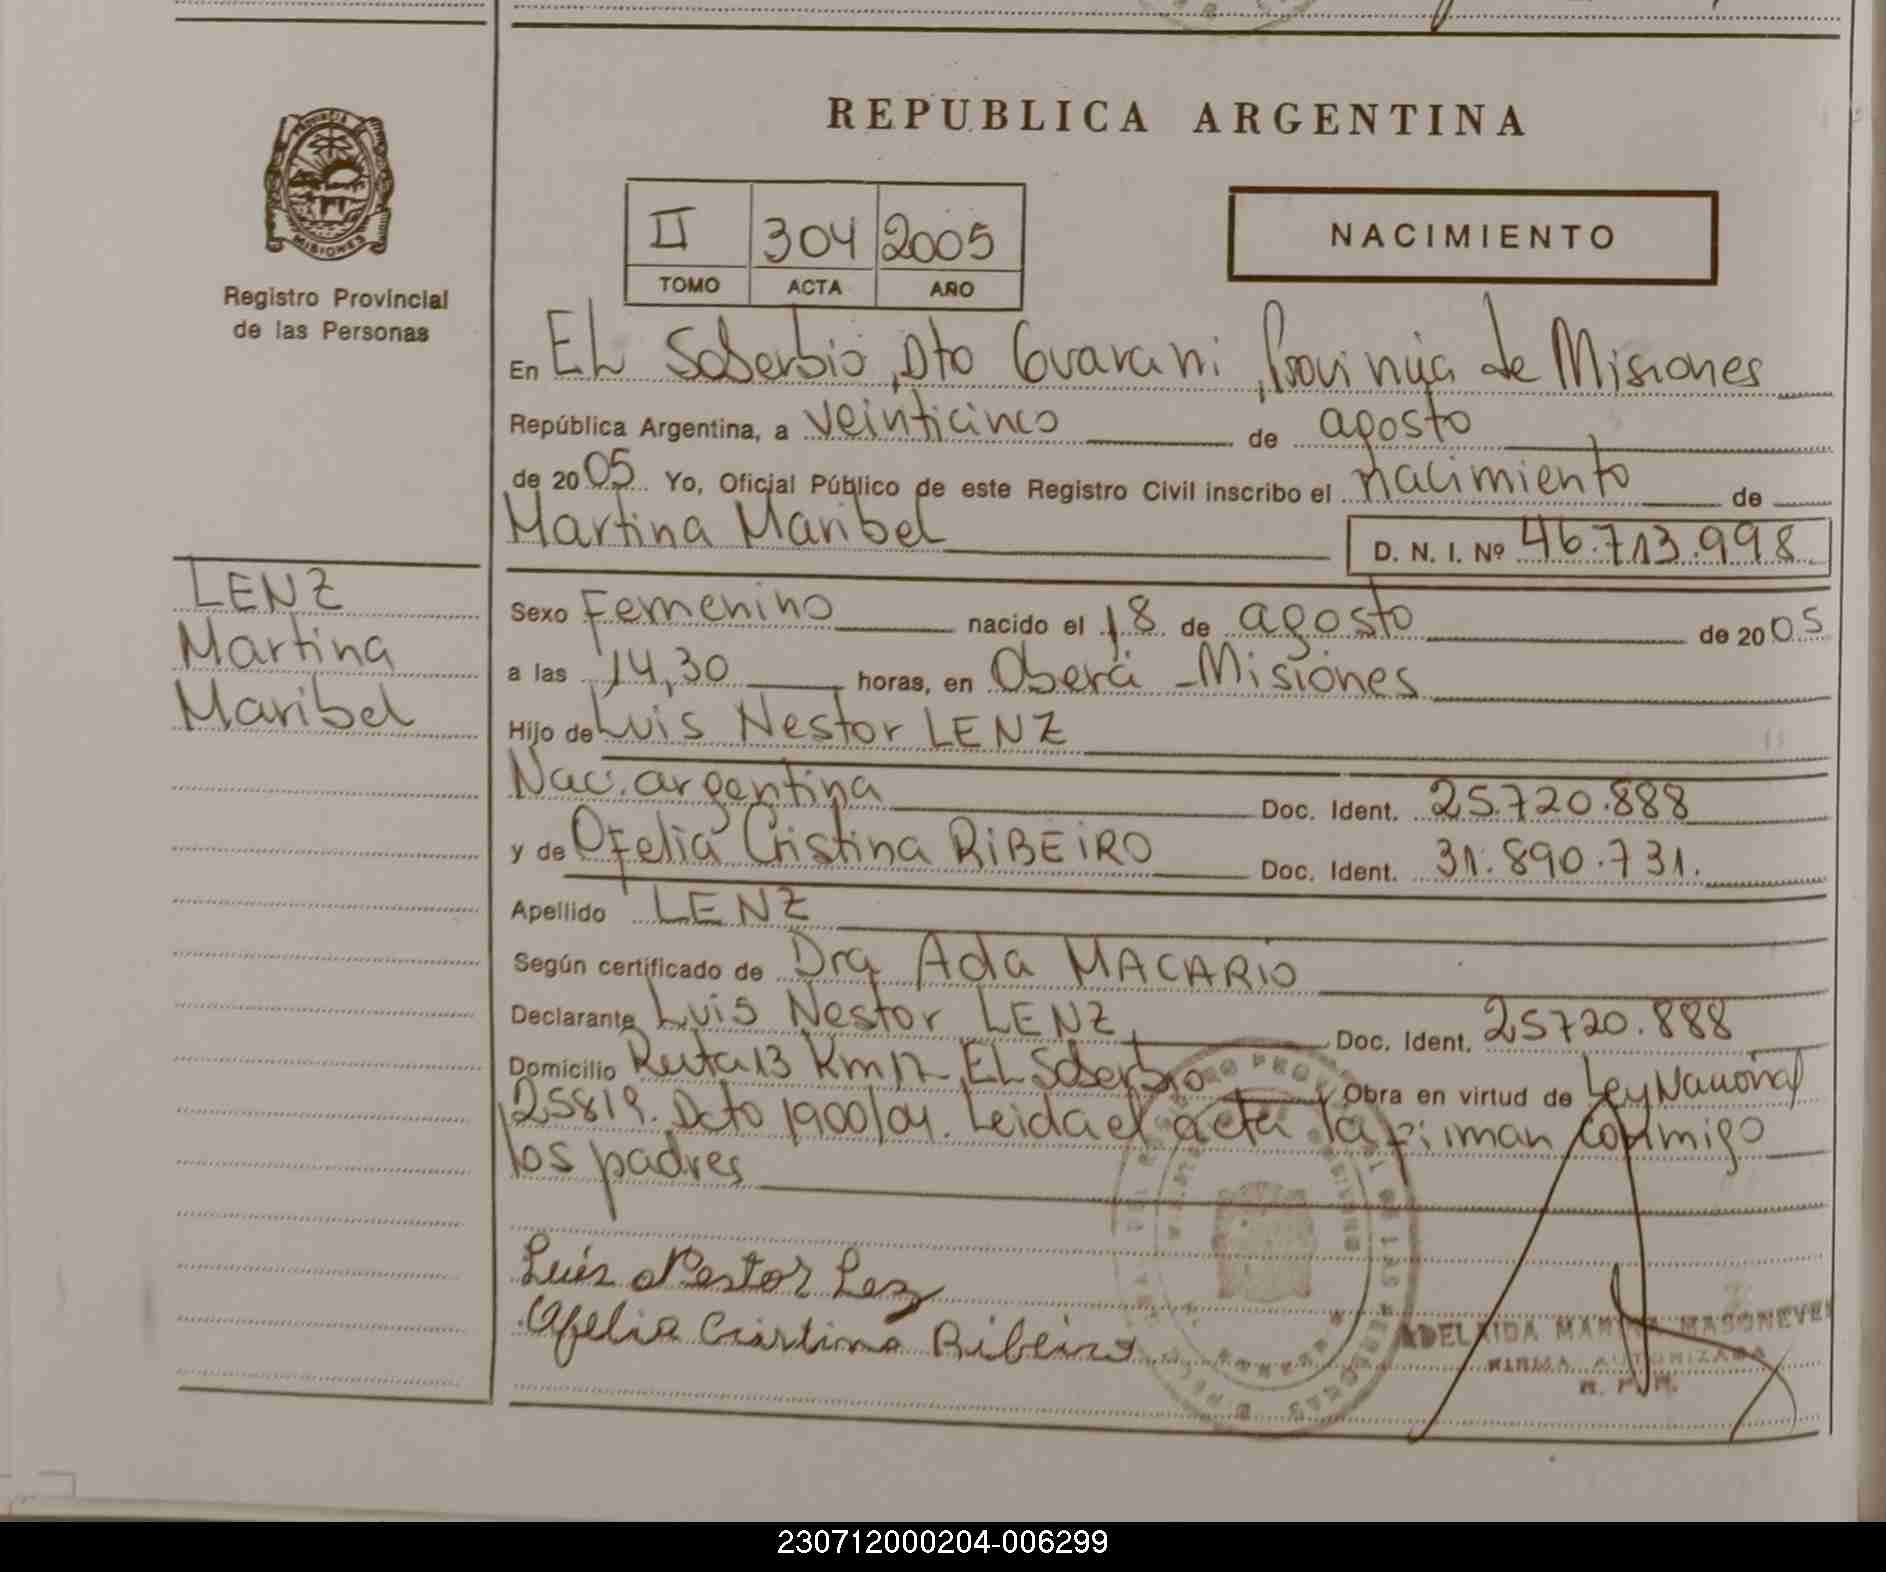 REPUBLICA ARGENTINA
PROVINCIA DE
MISIONES
Registro Provincial
de las Personas
II 304 2005
TOMO ACTA AÑO
NACIMIENTO
En EL Soberbio, Dto Guarani, Provincia de Misiones
República Argentina, a veinticinco de agosto
de 2005 Yo, Oficial Público de este Registro Civil inscribo el nacimiento de
Martina Maribel D. N. I. Nº 46.713.998
LENZ
Martina
Maribel
Sexo Femenino nacido el 18 de agosto de 2005
a las 14,30 horas, en Oberá - Misiones
Hijo de Luis Nestor LENZ
Nac. argentina Doc. Ident. 25.720.888
y de Ofelia Cristina RIBEIRO Doc. Ident. 31.890.731.
Apellido LENZ
Según certificado de Dra Ada MACARIO
Declarante Luis Nestor LENZ Doc. Ident. 25720.888
Domicilio Ruta 13 Km 12 EL Soberbio Obra en virtud de Ley Nacional
25819. Dcto 1900/04. Leida el acta la firman conmigo
los padres
Luis Nestor Lez
Ofelia Cristina Ribeiro
ADELAIDA
FIRMA AUTORIZADA
230712000204-006299